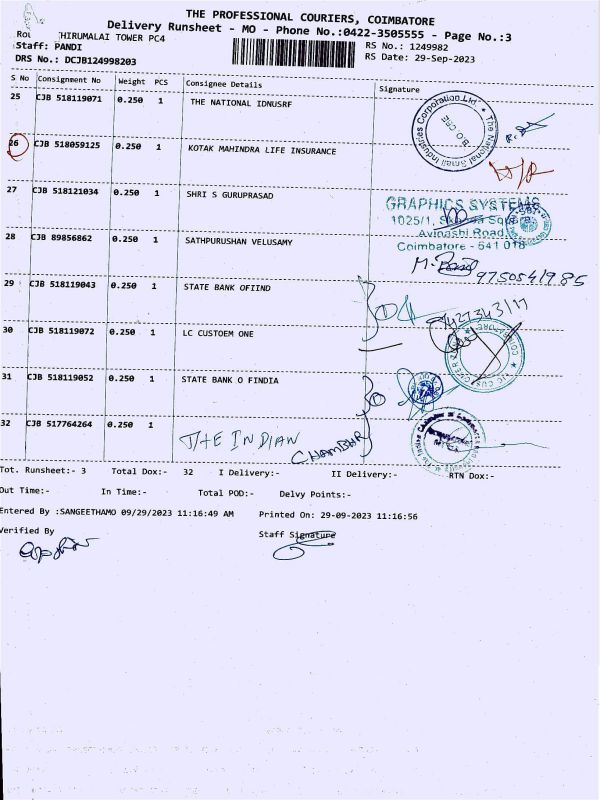 THE PROFESSIONAL COURIERS, COIMBATORE
Delivery Runsheet - MO - Phone No.:0422-3505555 - Page No.:3
HIRUMALAI TOWER PC4
RS No.: 1249982
Staff: PANDI
RS Date: 29-Sep-2023
DRS No.: DCJB124998203
S No Consignment No Weight PCS Consignee Details Signature
25 CJB 518119071 0.250 1 THE NATIONAL IDNUSRF
The National Small Industries Corporation Ltd.
B.O CBE
26 CJB 518059125 0.250 1 KOTAK MAHINDRA LIFE INSURANCE
27 CJB 518121034 0.250 1 SHRI S GURUPRASAD
GRAPHICS SYSTEMS
1025/1,
Avinashi Road
Coimbatore - 641 018
28 CJB 89856862 0.250 1 SATHPURUSHAN VELUSAMY
9750541985
29 CJB 518119043 0.250 1 STATE BANK OFIND
30 CJB 518119072 0.250 1 LC CUSTOEM ONE
31 CJB 518119052 0.250 1 STATE BANK O FINDIA
32 CJB 517764264 0.250 1
THE INDIAN
CHAMBAR
Tot. Runsheet:- 3 Total Dox:- 32 I Delivery:- II Delivery:- RTN Dox:-
Out Time:- In Time:- Total POD:- Delvy Points:-
Entered By :SANGEETHAMO 09/29/2023 11:16:49 AM Printed On: 29-09-2023 11:16:56
Verified By Staff Signature